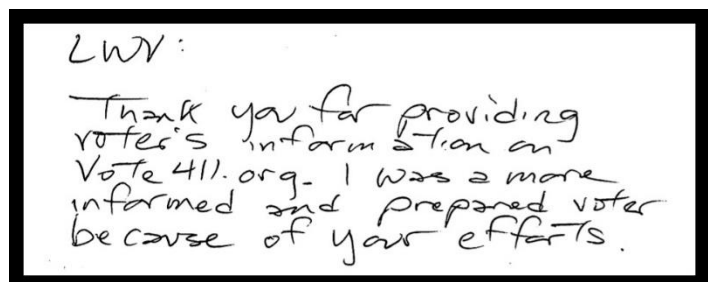 LWV:
Thank you for providing
voter's information on
Vote411.org. I was a more
informed and prepared voter
because of your efforts.